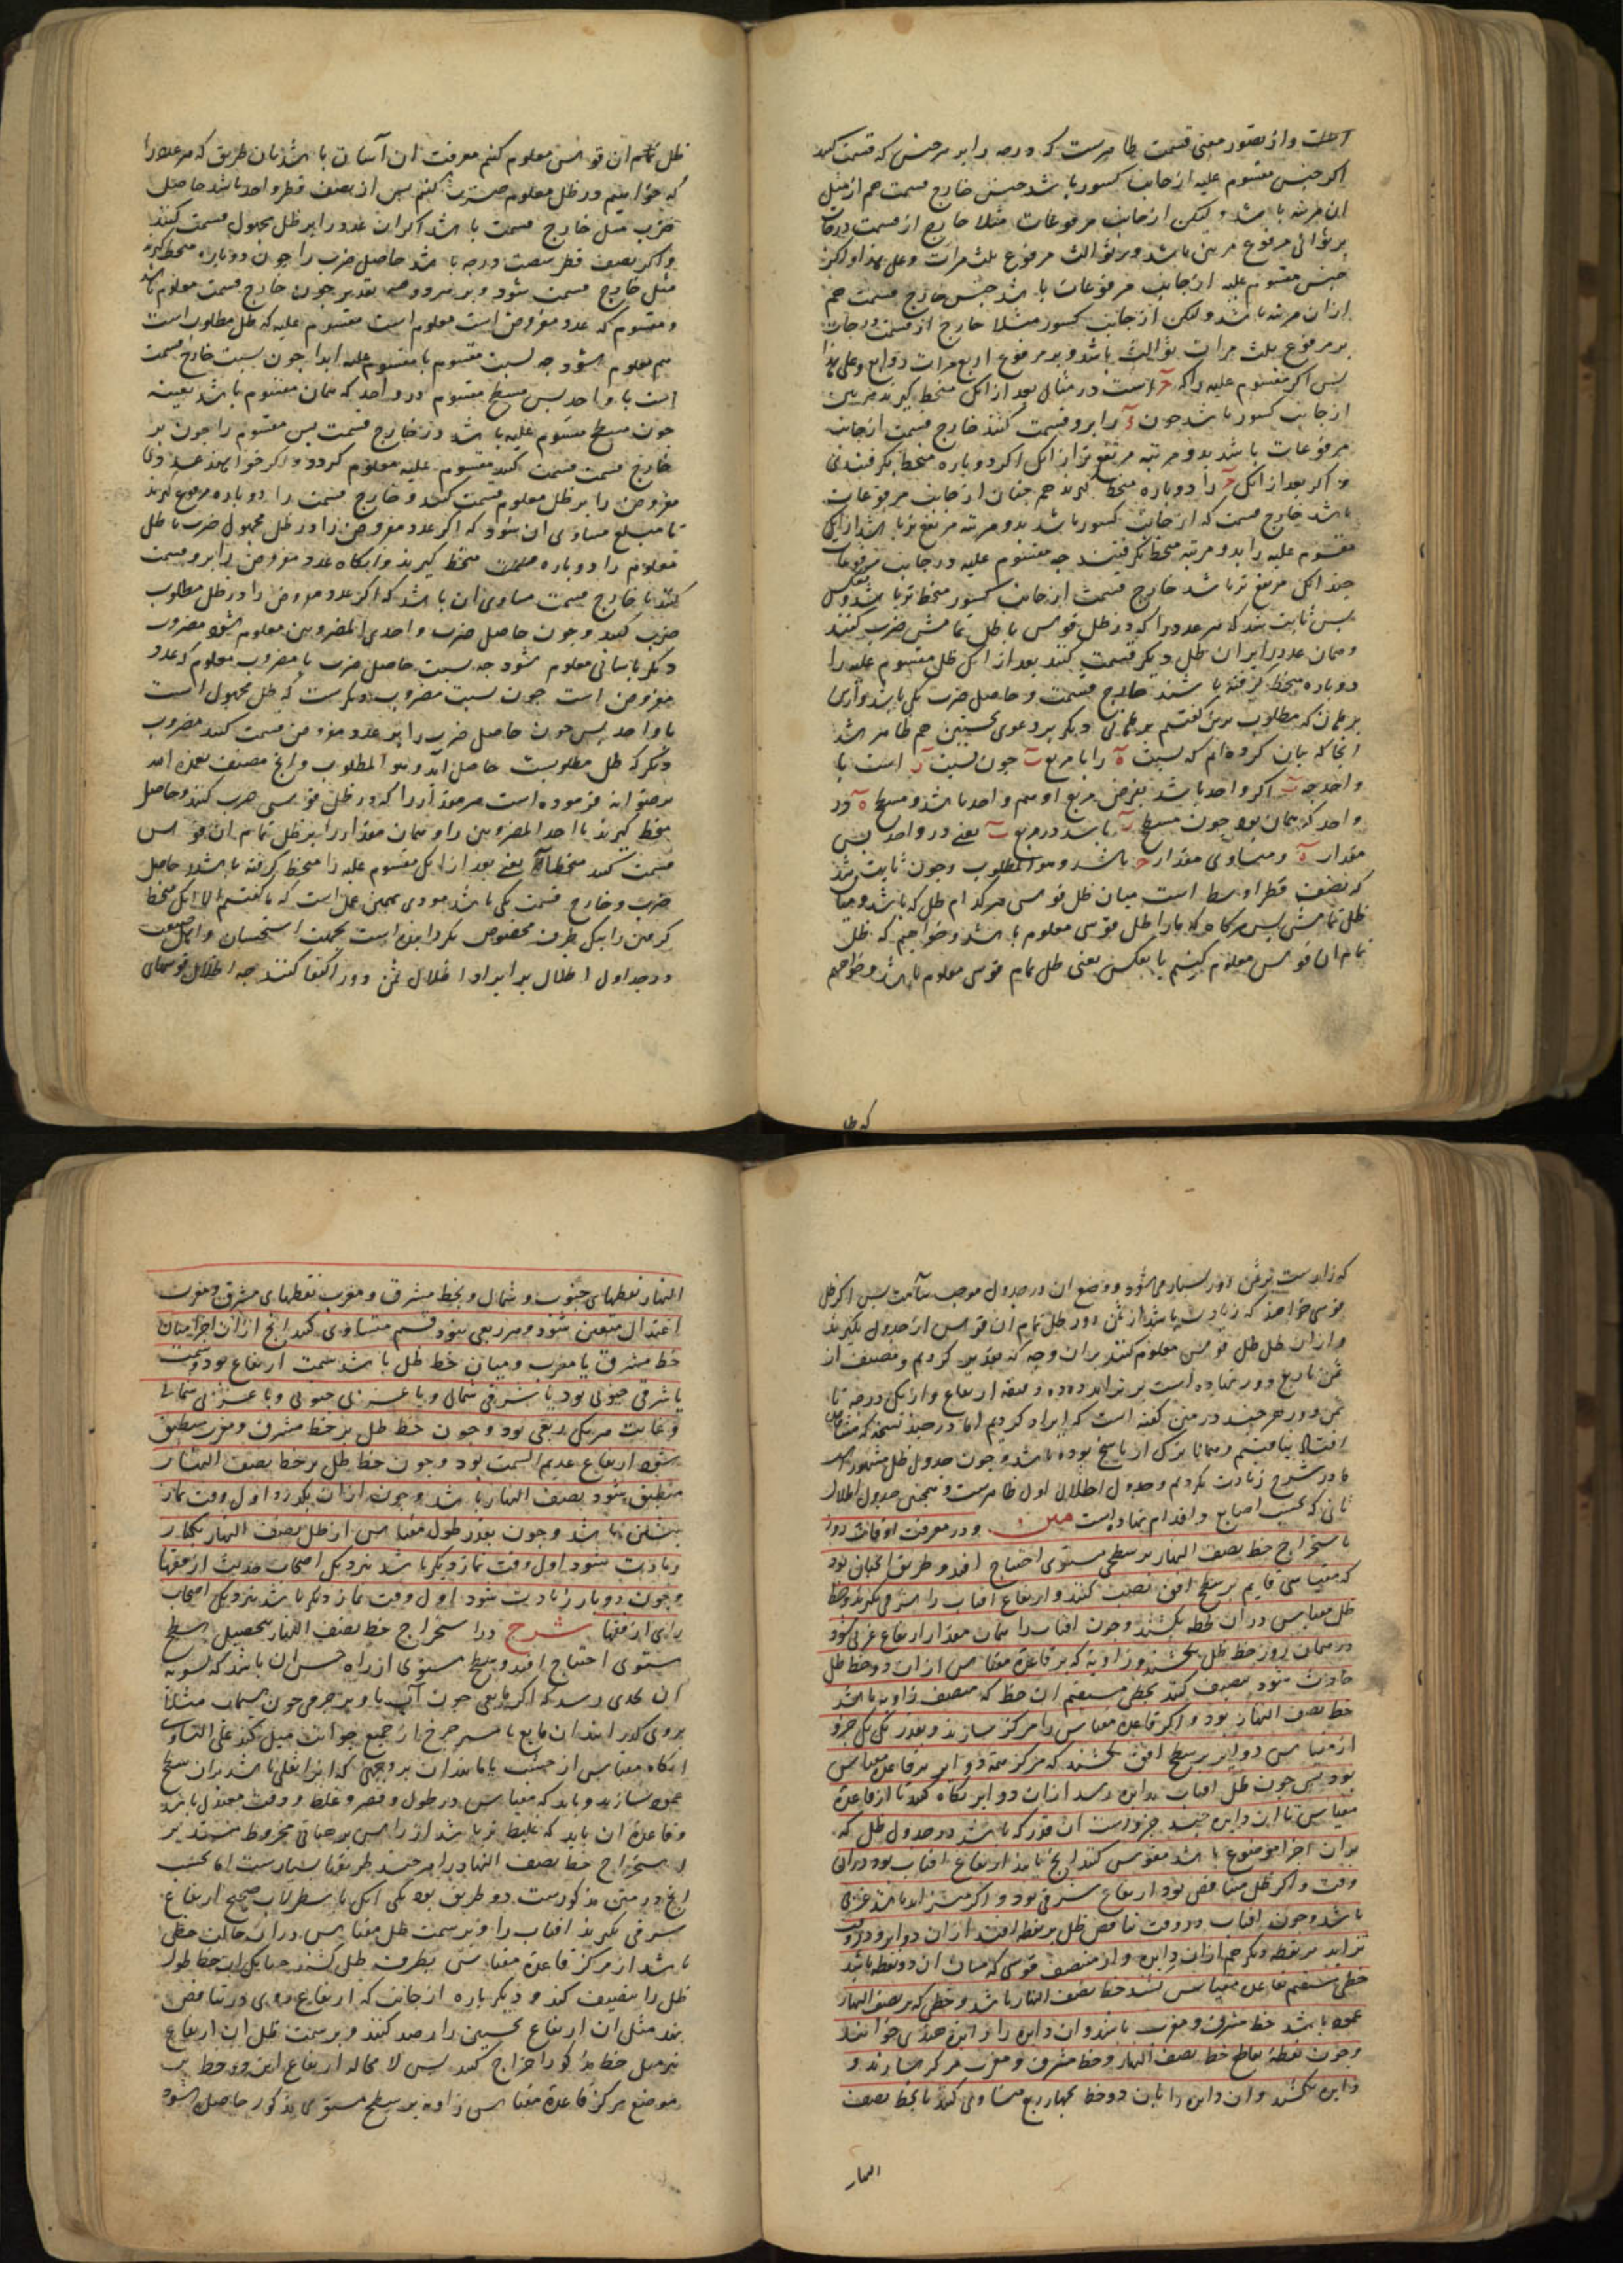 است و از تصور معنی قسمت ظاهرست که درجه را بر هر جنس که قسمت کنند
اکر جنس مقسوم علیه از جانب کسور باشد جنس خارج قسمت هم از مثل
ان مرتبه باشد و لیکن از جانب مرفوعات مثلا خارج از قسمت درجات
بر ثوانی مرفوع مرتین باشد و بر ثوالث مرفوع ثلث مرات و علی هذا و اکر
جنس مقسوم علیه از جانب مرفوعات باشد جنس خارج قسمت هم
ازان مرتبه باشد و لکن از جانب کسور مثلا خارج از قسمت درجات
بر مرفوع ثلث مرات ثوالث باشد و بر مرفوع اربع مرات روابع و علی هذا
پس اکر مقسوم علیه را که است در مثال بعد از انکه منحط کیرند مرتین
از جانب کسور باشد چون را برو قسمت کنند خارج قسمت از جانب
مرفوعات باشد بدو مرتبه مرتفع تر از انکه اکر دوباره منحط نکرفتندی
و اکر بعد از انکه را دوباره منحط کیرند هم چنان از جانب مرفوعات
باشد خارج قسمت که از جانب کسور باشد بدو مرتبه مرتفع تر باشد از انکه
مقسوم علیه را بدو مرتبه منحط نکرفتند چه مقسوم علیه در جانب مرفوعات
چندانکه مرتفع تر باشد خارج قسمت از جانب کسور منحط تر باشد و بالعکس
پس ثابت شد که هر عدد را که در ظل قوس یا ظل تمامش ضرب کنند
و همان عدد را بر ان ظل دیکر قسمت کنند بعد از انکه ظل مقسوم علیه را
دوباره منحط کرفته باشند خارج قسمت و حاصل ضرب یکی باشد و از این
برهان که مطلوب برین کفتیم برهانی دیکر بر دعوی نخستین هم ظاهر شد
انجا که بیان کرده ام که نسبت را با مربع چون نسبت است با
واحد چه اکر واحد باشد بفرض مربع او هم واحد باشد و مسطح در
واحد که همان بود چون مسطح باشد در مربع یعنی در واحد پس
مقدار مساوی مقدار باشد و هو المطلوب و چون ثابت شد
که نصف قطر اوسط است میان ظل قوس هر کدام ظل که باشد و میان
ظل تمامش پس هرکاه که ما را ظل قوسی معلوم باشد و خواهیم که ظل
تمام ان قوس معلوم کنیم یا بعکس یعنی ظل تمام قوس معلوم باشد و خواهیم
که ظل
ظل تمام ان قوس معلوم کنیم معرفت ان آسان باشد بان طریق که هر عدد را
که خواهیم در ظل معلوم ضرب کنیم پس از نصف قطر واحد باشد حاصل
ضرب مثل خارج قسمت باشد اکر ان عدد را بر ظل مجهول قسمت کنند
و اکر نصف قطر شصت درجه باشد حاصل ضرب را چون دوباره منحط کیرند
مثل خارج قسمت شود و بر هر دو تقدیر چون خارج قسمت معلوم باشد
و مقسوم که عدد مفروض است معلوم است مقسوم علیه که ظل مطلوب است
هم معلوم شود چه نسبت مقسوم با مقسوم علیه ابدا چون نسبت خارج قسمت
است با واحد پس مسطح مقسوم در واحد که همان مقسوم باشد بعینه
چون مسطح مقسوم علیه باشد در خارج قسمت پس مقسوم را چون بر
خارج قسمت قسمت کنند مقسوم علیه معلوم کردد و اکر خواهند عددی
مفروض را بر ظل معلوم قسمت کنند و خارج قسمت را دوباره مرفوع کیرند
تا مبلغ مساوی ان شود که اکر عدد مفروض را در ظل مجهول ضرب یا ظل
معلوم را دوباره منحط کیرند و انکاه عدد مفروض را برو قسمت
کنند تا خارج قسمت مساوی ان باشد که اکر عدد مفروض را در ظل مطلوب
ضرب کنند و چون حاصل ضرب و احدی المضروبین معلوم شود مضروب
دیکر باسانی معلوم شود چه نسبت حاصل ضرب با مضروب معلوم که عدد
مفروض است چون نسبت مضروب دیکرست که ظل مجهول است
با واحد پس چون حاصل ضرب را بر عدد مفروض قسمت کنند مضروب
دیکر که ظل مطلوبست حاصل آید و هو المطلوب و انچ مصنف تغمده الله
برضوانه فرموده است هر مقدار را که در ظل قوسی ضرب کنند و حاصل
منحط کیرند یا احد المضروبین را و همان مقدار را بر ظل تمام ان قوس
قسمت کنند منحطا یعنی بعد از انکه مقسوم علیه را منحط کرفته باشند حاصل
ضرب و خارج قسمت یکی باشد مودی همین عمل است که ما کفتیم الا انکه منحط
کرفتن را بیکی طرف مخصوص نکردانیده است بجهت استحسان و انکه مصنف
در جداول اظلال بر ایراد اظلال ثمن دور اکتفا کنند چه اظلال قوسهای
که زیادت بر ثمن دور بسیار می شود و وضع ان در جدول موجب سآمت پس اکر ظل
قوسی خواهند که زیادت باشد از ثمن دور ظل تمام ان قوس از جدول بکیرند
و از ان ظل ظل قوس معلوم کنند بران وجه که تقدیر کردیم و مصنف از
ثمن تا ربع دور نهاده است بر تزاید ده ده دقیقه ارتفاع و از یک درجه تا
ثمن دور هر چند در متن کفته است که ایراد کردیم اما در چند نسخه که مشاهده
افتاد نیافتیم و همانا ترک از ناسخ بوده باشد و چون جدول ظل مشهورست
ما در شرح زیادت نکردیم و جدول اظلال اول ظاهرست و همچنین جدول اظلال
ثانی که بحسب اصابع و اقدام نهاده است متن و در معرفت اوقات روز
باستخراج خط نصف النهار بر سطحی مستوی احتیاج افتد و طریق انچنان بود
که مقیاسی قایم بر سطح افق نصب کنند و ارتفاع افتاب را شرقی بکیرند و خط
ظل مقیاس دران لحظه بکشند و چون افتاب را همان مقدار ارتفاع غربی شود
در همان روز خط ظل بکشند و زاویه که بر قاعده مقیاس از ان دو خط ظل
حادث شود تنصیف کنند بخطی مستقیم ان خط که منصف زاویه باشد
خط نصف النهار بود و اکر قاعده مقیاس را مرکز سازند و بقدر یک یک جزو
از مقیاس دوایر بر سطح افق بکشند که مرکز همه دوایر بر قاعده مقیاس
بود پس چون ظل افتاب بدایره رسد از ان دوایر نکاه کنند تا از قاعده
مقیاس تا ان دایره چند جزوست ان قدر که باشد در جدول ظل که
بران اجزا موضوع باشد مقوس کنند انچ یابند ارتفاع افتاب بود دران
وقت و اکر ظل متناقص بود ارتفاع شرقی بود و اکر متزاید باشد غربی
باشد و چون افتاب در وقت تناقص ظل بر نقطه افتد از ان دوایر و در وقت
تزاید بر نقطه دیکر هم از ان دایره و از منتصف قوسی که میان ان دو نقطه باشد
خطی مستقیم بقاعده مقیاس کشند خط نصف النهار باشد و خطی که بر نصف النهار
عمود باشد خط مشرق و مغرب باشد و ان دایره را دایره هندی خوانند
و چون نقطه تقاطع خط نصف النهار و خط مشرق و مغرب مرکز سازند و
دایره بکشند و ان دایره را بان دو خط بچهار ربع متساوی کنند تا بخط نصف
النهار
النهار نقطهای جنوب و شمال و بخط مشرق و مغرب نقطهای مشرق و مغرب
اعتدال متعین شود و هر ربعی بنود قسم متساوی کنند انچ از ان اجزا میان
خط مشرق یا مغرب و میان خط ظل باشد سمت ارتفاع بود و سمت
یا شرقی جنوبی بود یا شرقی شمالی و یا غربی جنوبی و یا غربی شمالی
و غایت هر یکی ربعی بود و چون خط ظل بر خط مشرق و مغرب منطبق
شود ارتفاع عدیم السمت بود و چون خط ظل بر خط نصف النهار
منطبق شود نصف النهار باشد و چون از ان بکذرد اول وقت نماز
پیشین باشد و چون بقدر طول مقیاس از ظل نصف النهار یکبار
زیادت شود اول وقت نماز دیکر باشد نزدیک اصحاب حدیث از فقها
و چون دو بار زیادت شود اول وقت نماز دیکر باشد نزدیک اصحاب
رای از فقها شرح در استخراج خط نصف النهار بتحصیل سطح
مستوی احتیاج افتد و سطح مستوی از راه حس ان باشد که تسویه
ان بحدی رسد که اکر مایعی چون آب یا متدحرجی چون سیماب مثلا
بروی کدرانند ان مایع یا متدحرج از جمیع جوانب میل کند علی التساوی
انکاه مقیاس از خشب یا مانند ان بر وجهی که انرا ثقلی باشد بران سطح
عمود سازند و باید که مقیاس در طول و قصر و غلظ و دقت معتدل باشد
و قاعده ان باید که غلیظ تر باشد از راس بر هیات مخروط مستدیر
و استخراج خط نصف النهار را هر چند طریقها بسیارست اما بحسب
انچ در متن مذکورست دو طریق بود یکی انکه باسطرلاب صحیح ارتفاع
شرقی بکیرند افتاب را و بر سمت ظل مقیاس دران حالت خطی
باشد از مرکز قاعده مقیاس بطرف ظل کشند چنانکه ان خط طول
ظل را تنصیف کند و دیکر باره از جانب که ارتفاع روی در تناقص
نهد مثل ان ارتفاع نخستین را رصد کنند و بر سمت ظل ان ارتفاع
نیز مثل خط مذکور اخراج کنند پس لا محاله ارتفاع این دو خط بر
موضع مرکز قاعده مقیاس زاویه بر سطح مستوی مذکور حاصل شود